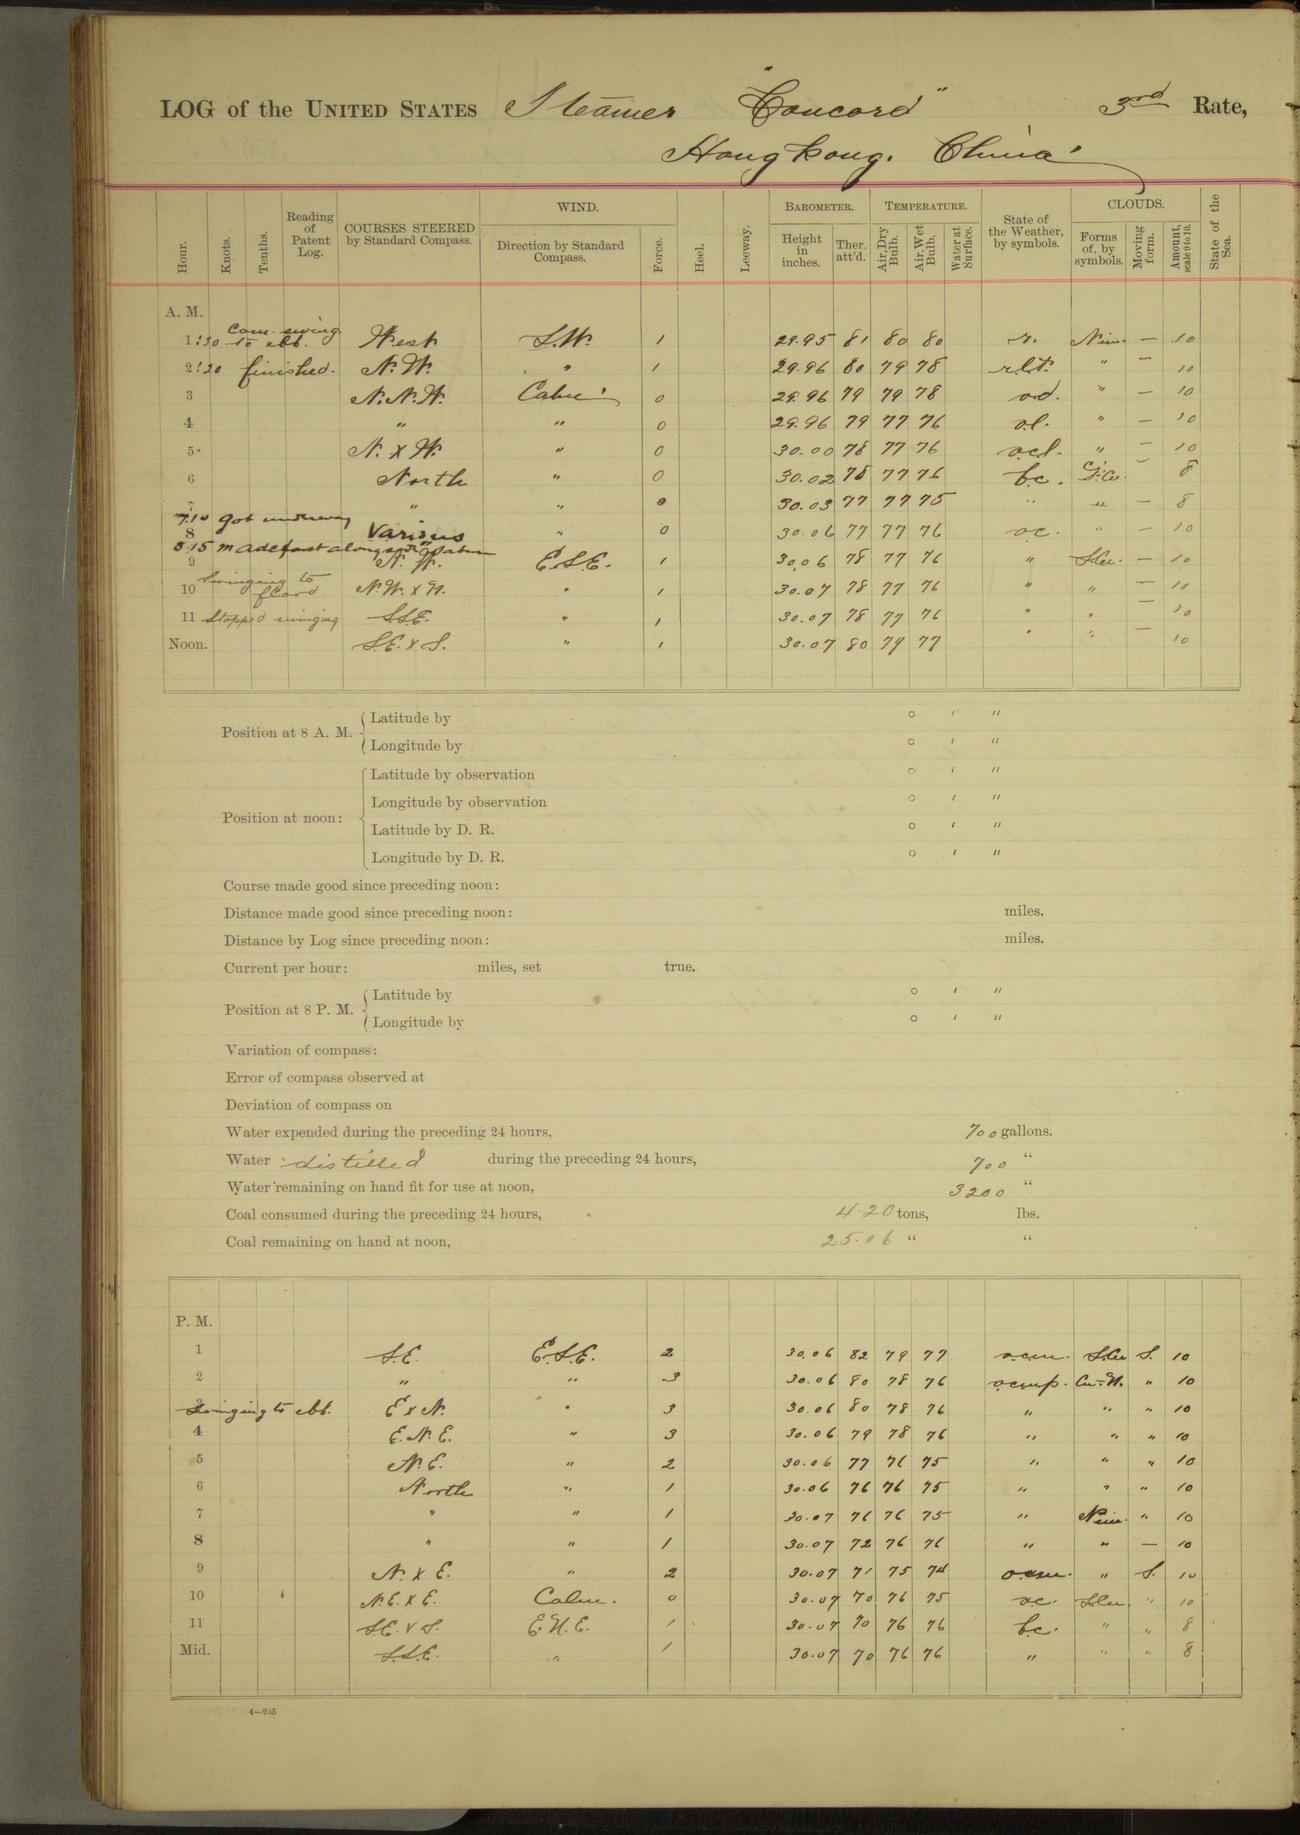 LOG of the UNITED STATES Steamer "Concord" 3rd Rate,
Hongkong. China
Hour. Knots. Tenths. Reading of Patent Log. COURSES STEERED by Standard Compass. WIND. Direction by Standard Compass. Force. Heel. Leeway. BAROMETER. Height in inches. Ther. att'd. TEMPERATURE. Air, Dry Bulb. Air, Wet Bulb. Water at Surface. State of the Weather, by symbols. CLOUDS. Forms of, by symbols. Moving form. Amount, scale 0 to 10. State of the Sea.
A. M.
1:30 Com. swing. to ebb. West S.W. 1 29.95 81 80 80 r. Nim. — 10
2:20 finished. N.W. " 1 29.96 80 79 78 r.l.t. " — 10
3 N.N.W. Calm 0 29.96 79 79 78 o.d. " — 10
4 " " 0 29.96 79 77 76 o.l. " — 10
5 N. X W. " 0 30.00 78 77 76 ocl. " — 10
6 North " 0 30.02 78 77 76 b.c. — 8
7 " " 0 30.03 77 77 75 " " — 8
7:10 got underway
8 Various " 0 30.06 77 77 76 o.c. " — 10
8:15 made fast alongside
9 N. W. E.S.E. 1 30.06 78 77 76 " S.Cu. — 10
10 Swinging to flood N.W. X N. " 1 30.07 78 77 76 " " — 10
11 Stopped swinging S.S.E. " 1 30.07 78 77 76 " " — 10
Noon. S.E. X S. " 1 30.07 80 79 77 " " — 10
Position at 8 A. M. { Latitude by ° ′ ″
Longitude by ° ′ ″
Position at noon: { Latitude by observation ° ′ ″
Longitude by observation ° ′ ″
Latitude by D. R. ° ′ ″
Longitude by D. R. ° ′ ″
Course made good since preceding noon:
Distance made good since preceding noon: miles.
Distance by Log since preceding noon: miles.
Current per hour: miles, set true.
Position at 8 P. M. { Latitude by ° ′ ″
Longitude by ° ′ ″
Variation of compass:
Error of compass observed at
Deviation of compass on
Water expended during the preceding 24 hours, 700 gallons.
Water distilled during the preceding 24 hours, 700 "
Water remaining on hand fit for use at noon, 3200 "
Coal consumed during the preceding 24 hours, 4.20 tons, lbs.
Coal remaining on hand at noon, 25.06 " "
P. M.
1 S.E. E.S.E. 2 30.06 82 79 77 o.c.m. S.Cu S. 10
2 " " 3 30.06 80 78 76 ocmp. Cu-N. " 10
3 Swinging to ebb. E X N. " 3 30.06 80 78 76 " " " 10
4 E.N.E. " 3 30.06 79 78 76 " " " 10
5 N.E. " 2 30.06 77 76 75 " " " 10
6 North " 1 30.06 76 76 75 " " " 10
7 " " 1 30.07 76 76 75 " Nim. " 10
8 " " 1 30.07 72 76 76 " " — 10
9 N. X E. " 2 30.07 71 75 74 o.c.m. " S. 10
10 N.E. X E. Calm. 0 30.07 70 76 75 o.c. S.Cu. " 10
11 S.E. X S. E.N.E. 1 30.07 70 76 76 b.c. " " 8
Mid. S.S.E. " 1 30.07 70 76 76 " " " 8
4—235